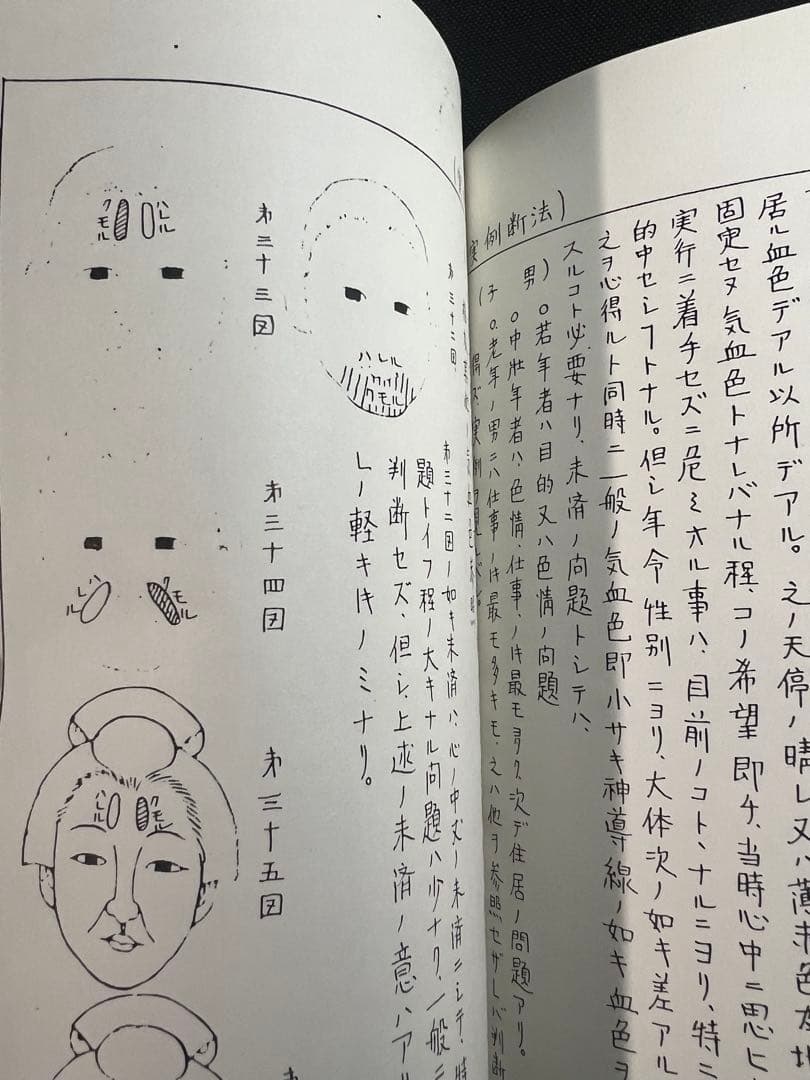 居ル血色デアル以所デアル。之ノ天停ノ晴レ又ハ薄赤色
固定セヌ気血色トナレバナル程、コノ希望即チ、当時心中ニ思ヒ
実行ニ着手セズニ危ミオル事ハ、目前ノコトトナルニヨリ、特ニ
的中セシフトナル。但シ年令性別ニヨリ、大体次ノ如キ差アル
之ヲ心得ルト同時ニ一般ノ気血色即小サキ神導線ノ如キ血色ヲ
スルコト必要ナリ、未済ノ問題トシテハ、
男)○若年者ハ目的又ハ色情ノ問題
○中壮年者ハ、色情、仕事、ノ件最モ多ク、次デ住居ノ問題アリ。
(子○老年ノ男ニハ仕事ノ件最モ多キモ、之ハ他ヲ参照セザレバ判断
実例断法)
第三十二図
ハレル
クモル
第三十二図ノ如キ未済ハ、心ノ中丈ノ未済ニシテ、特
題トイフ程ノ大キナル問題ハ少ナク、一般ニ
判断セズ、但シ、上述ノ未済ノ意ハアル
レノ軽キ件ノミナリ。
第三十三図
ハレル
クモル
第三十四図
ハレル
クモル
第三十五図
クモル
ハレル
第三